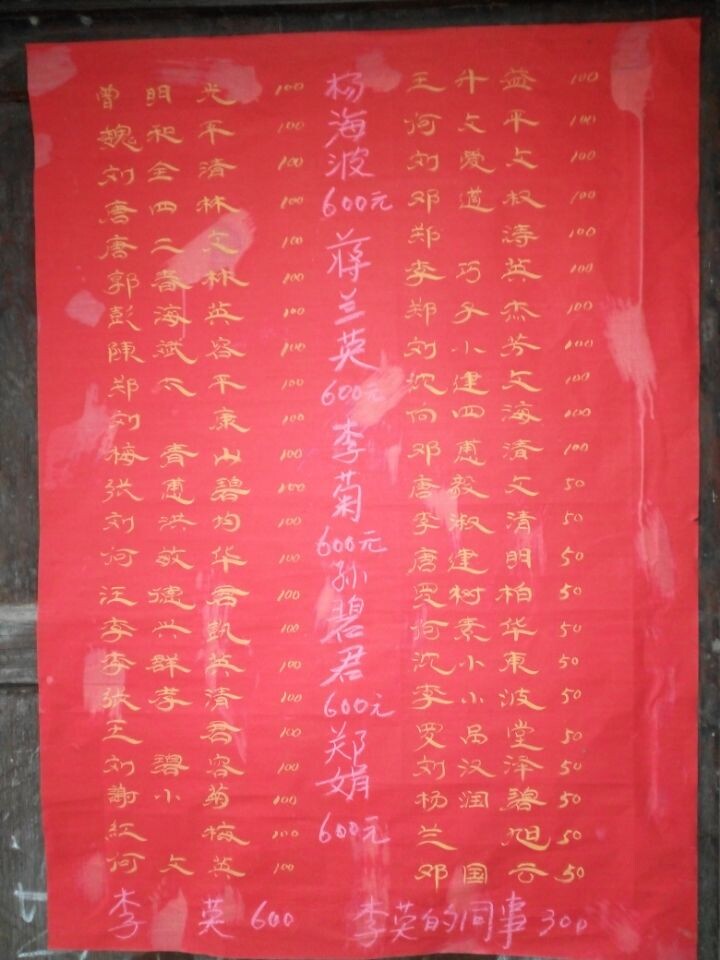 曾明光 100
魏和平 100
刘全清 100
唐四林 100
唐二文 100
郭春林 100
彭海英 100
陈斌容 100
郑太平 100
刘康 100
梅青山 100
张甫碧 100
刘洪均 100
何敏华 100
汪德君 100
李兴凯 100
李群英 100
张孝清 100
王君 100
刘碧容 100
谢小菊 100
红梅 100
何文英 100
杨海波
600元
蒋兰英
600元
李菊
600元
孙碧君
600元
郑娟
600元
王升益 100
何文平 100
刘爱文 100
邓道权 100
郑涛 100
李巧英 100
郑子杰 100
刘小芳 100
沈建文 100
何四海 100
邓甫清 100
唐毅文 50
李淑清 50
唐建明 50
罗树柏 50
何素华 50
沈小东 50
李小波 50
罗昌堂 50
刘汉泽 50
杨润碧 50
兰旭 50
邓国云 50
李英 600
李英的同事 300